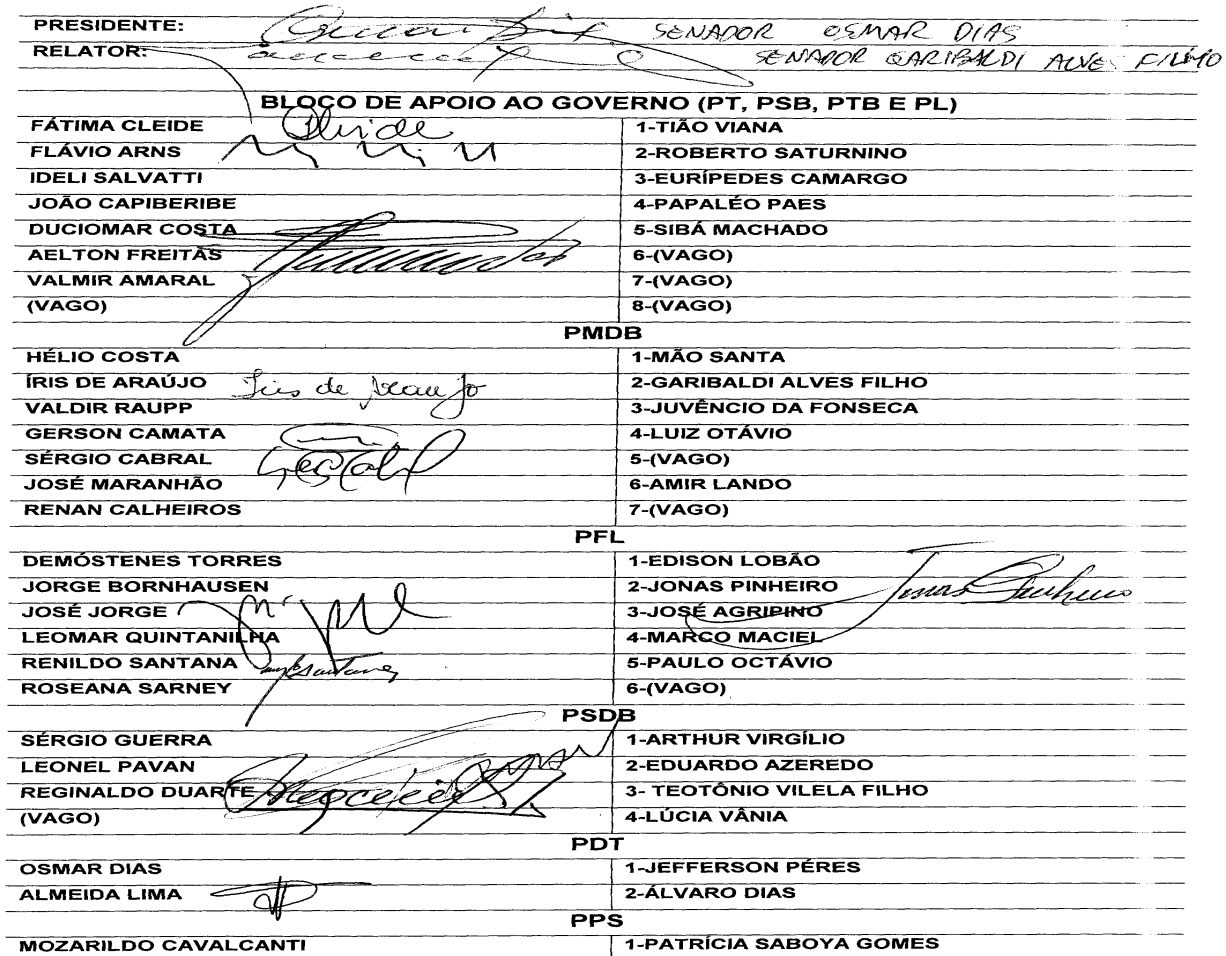 PRESIDENTE: SENADOR OSMAR DIAS
RELATOR: SENADOR GARIBALDI ALVES FILHO
BLOCO DE APOIO AO GOVERNO (PT, PSB, PTB E PL)
FÁTIMA CLEIDE 1-TIÃO VIANA
FLÁVIO ARNS 2-ROBERTO SATURNINO
IDELI SALVATTI 3-EURÍPEDES CAMARGO
JOÃO CAPIBERIBE 4-PAPALÉO PAES
DUCIOMAR COSTA 5-SIBÁ MACHADO
AELTON FREITAS 6-(VAGO)
VALMIR AMARAL 7-(VAGO)
(VAGO) 8-(VAGO)
PMDB
HÉLIO COSTA 1-MÃO SANTA
ÍRIS DE ARAÚJO Iris de Araujo 2-GARIBALDI ALVES FILHO
VALDIR RAUPP 3-JUVÊNCIO DA FONSECA
GERSON CAMATA 4-LUIZ OTÁVIO
SÉRGIO CABRAL 5-(VAGO)
JOSÉ MARANHÃO 6-AMIR LANDO
RENAN CALHEIROS 7-(VAGO)
PFL
DEMÓSTENES TORRES 1-EDISON LOBÃO
JORGE BORNHAUSEN 2-JONAS PINHEIRO Jonas Pinheiro
JOSÉ JORGE 3-JOSÉ AGRIPINO
LEOMAR QUINTANILHA 4-MARCO MACIEL
RENILDO SANTANA 5-PAULO OCTÁVIO
ROSEANA SARNEY 6-(VAGO)
PSDB
SÉRGIO GUERRA 1-ARTHUR VIRGÍLIO
LEONEL PAVAN 2-EDUARDO AZEREDO
REGINALDO DUARTE 3- TEOTÔNIO VILELA FILHO
(VAGO) 4-LÚCIA VÂNIA
PDT
OSMAR DIAS 1-JEFFERSON PÉRES
ALMEIDA LIMA 2-ÁLVARO DIAS
PPS
MOZARILDO CAVALCANTI 1-PATRÍCIA SABOYA GOMES